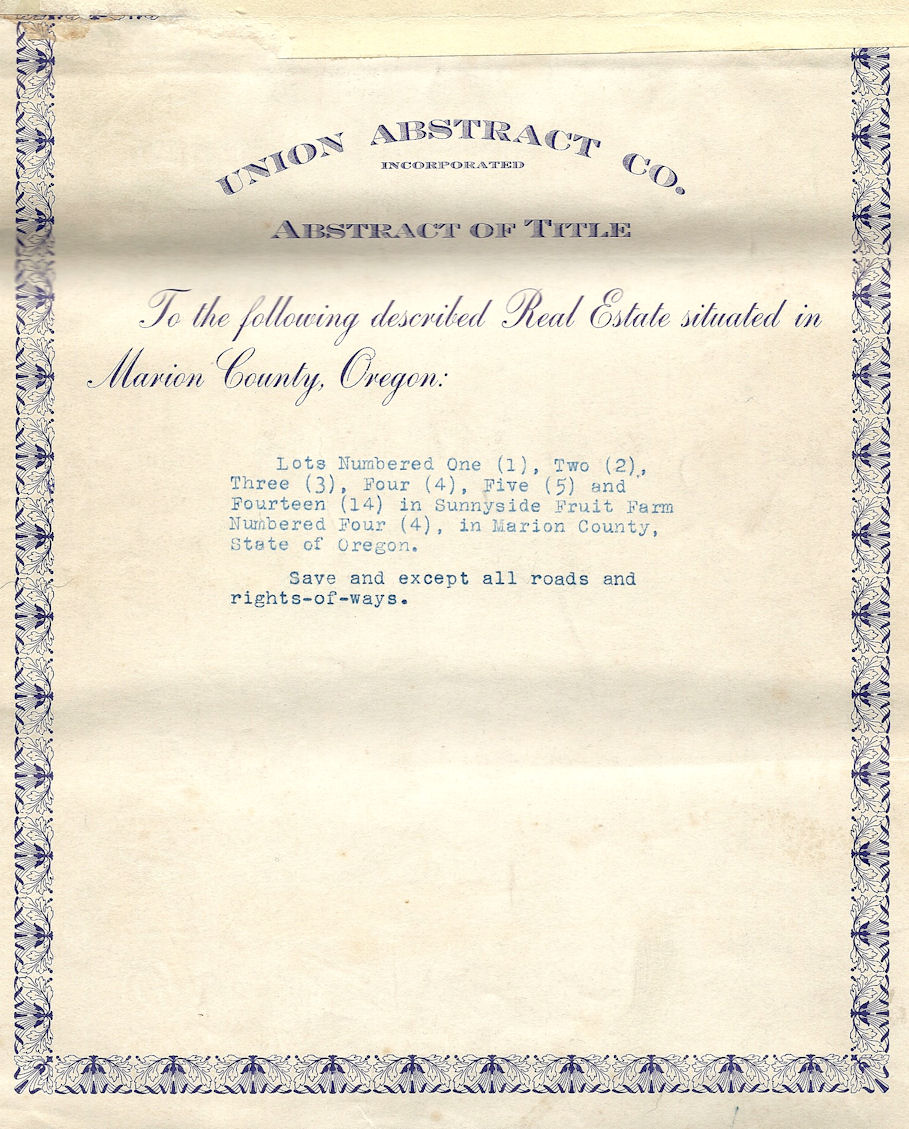 UNION ABSTRACT CO.
INCORPORATED
ABSTRACT OF TITLE
To the following described Real Estate situated in
Marion County, Oregon:
Lots Numbered One (1), Two (2),
Three (3), Four (4), Five (5) and
Fourteen (14) in Sunnyside Fruit Farm
Numbered Four (4), in Marion County,
State of Oregon.
Save and except all roads and
rights-of-ways.